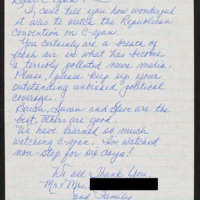 I can't tell you how wonderful
it was to watch the Republican
Convention on C-span.
You certainly are a breath of
fresh air in what has become
a terribly polluted news media.
Please, please keep up your
outstanding unbiased political
coverage.
Brian, Susan and Steve are the
best, others are good.
We have learned so much
watching C-span. I've watched
non-stop for six days!
We all Thank You
Mr. & Mrs.
and Family